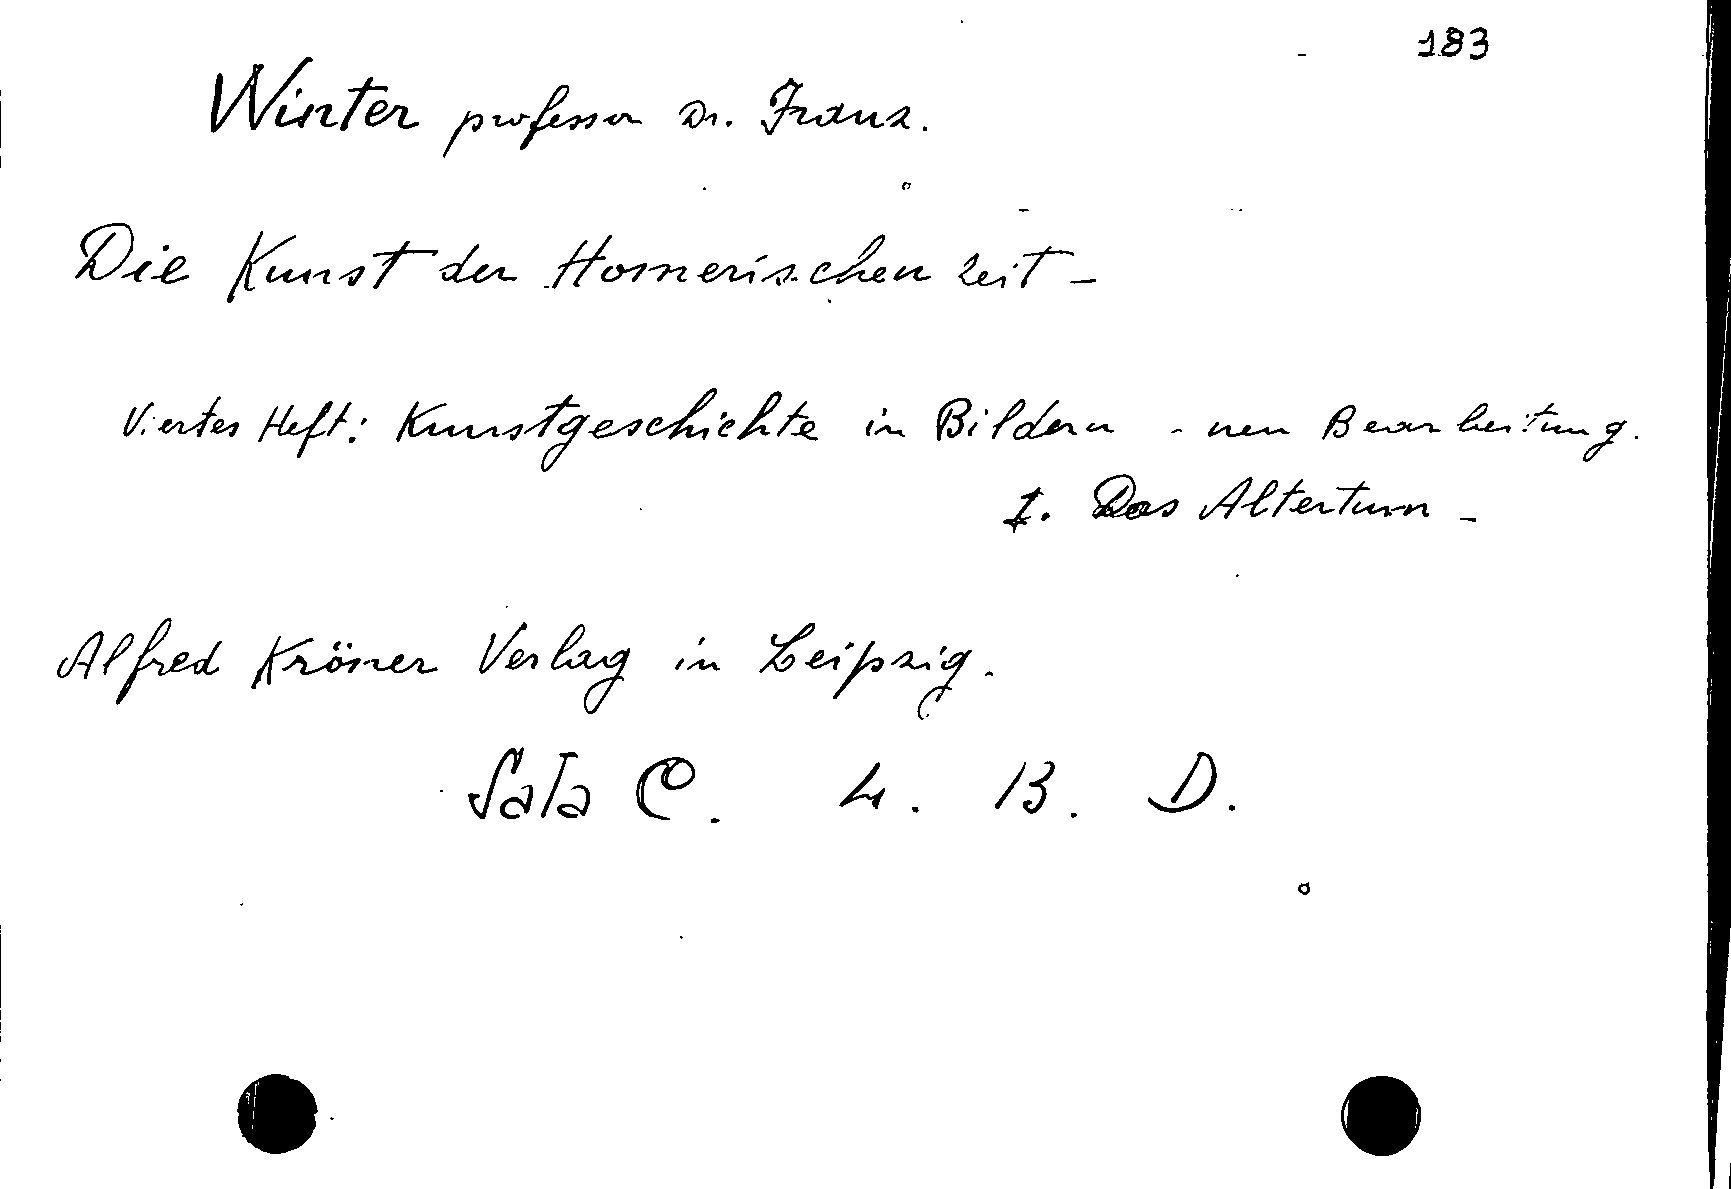 183
Winter professor Dr. Franz.
Die Kunst der Homerischen Zeit -
Viertes Heft: Kunstgeschichte in Bildern - neu Bearbeitung.
I. Das Altertum -
Alfred Kröner Verlag in Leipzig.
Sala C. 4. B. D.